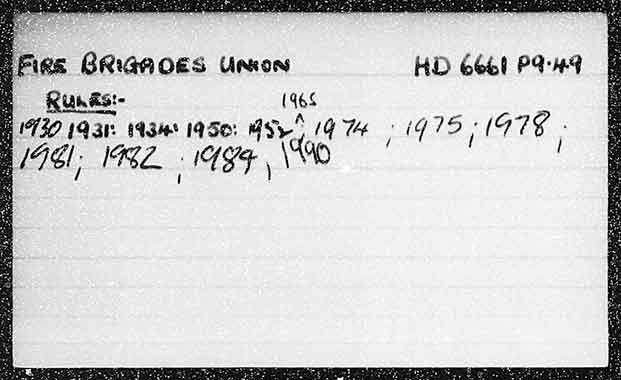 FIRE BRIGADES UNION HD 6661 P9.49
RULES:-
1965
1930 1931: 1934: 1950: 1952 ^; 1974 ; 1975; 1978;
1981; 1982 ; 1984, 1990